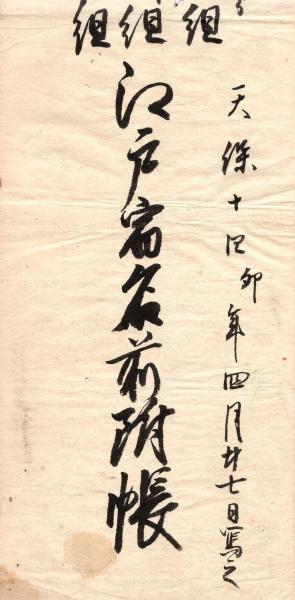 天保十四卯年四月廿七日寫之
組
組
組
江戸宿名前附帳